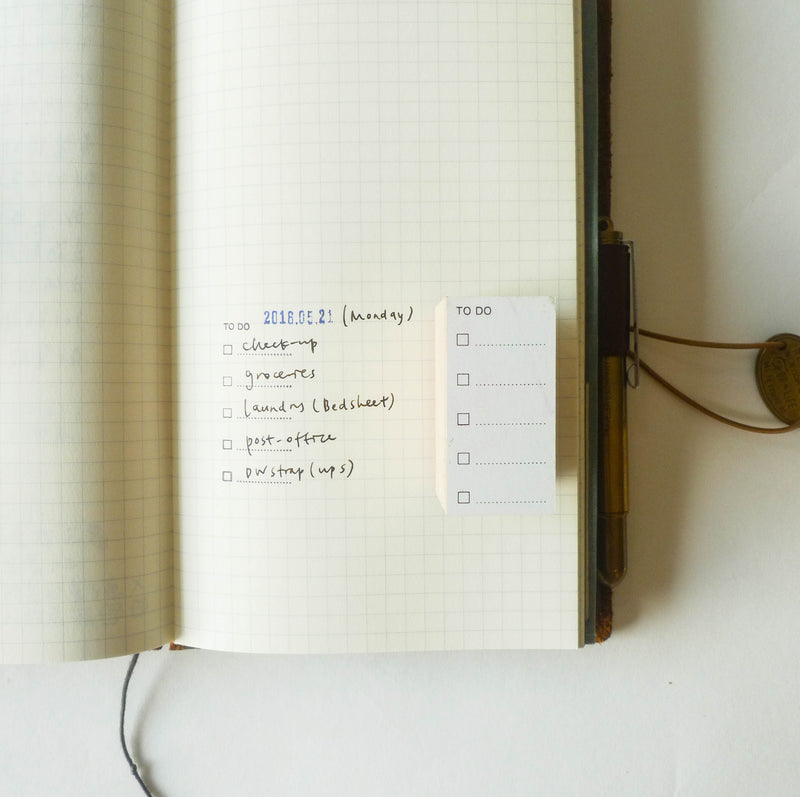 TO DO 2018.05.21 (Monday)
check-up
groceries
laundry (Bedsheet)
post-office
DW strap (ups)
TO DO